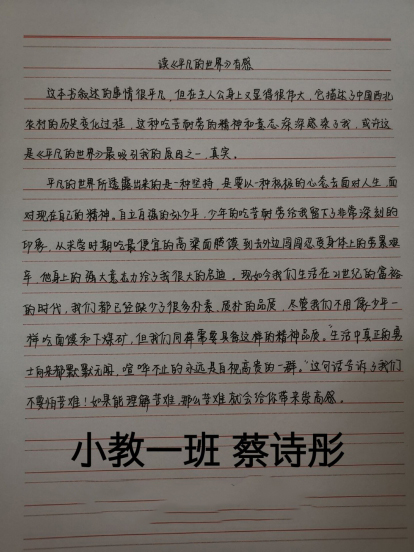 读《平凡的世界》有感
这本书叙述的事情很平凡，但在主人公身上又显得很伟大，它描述了中国西北
农村的历史变化过程，这种吃苦耐劳的精神和意志深深感染了我，或许这
是《平凡的世界》最吸引我的原因之一，真实。
平凡的世界所透露出来的是一种坚持，是要以一种积极的心态去面对人生，面
对现在自己的精神。自立自强的孙少平，少年的吃苦耐劳给我留下了非常深刻的
印象，从求学时期吃最便宜的高粱面馍馍到去外边闯闯忍受身体上的劳累艰
辛，他身上的强大意志力给了我很大的启迪。现如今我们生活在21世纪的富裕
的时代，我们都已经缺少了很多朴素、质朴的品质，尽管我们不用像少年一
样吃面馍和下煤矿，但我们同样需要具备这样的精神品质。"生活中真正的勇
士向来都默默无闻，喧哗不止的永远是自视高贵的一群。"这句话告诉了我们
不要怕苦难！如果能理解苦难，那么苦难就会给你带来崇高感。
小教一班 蔡诗彤